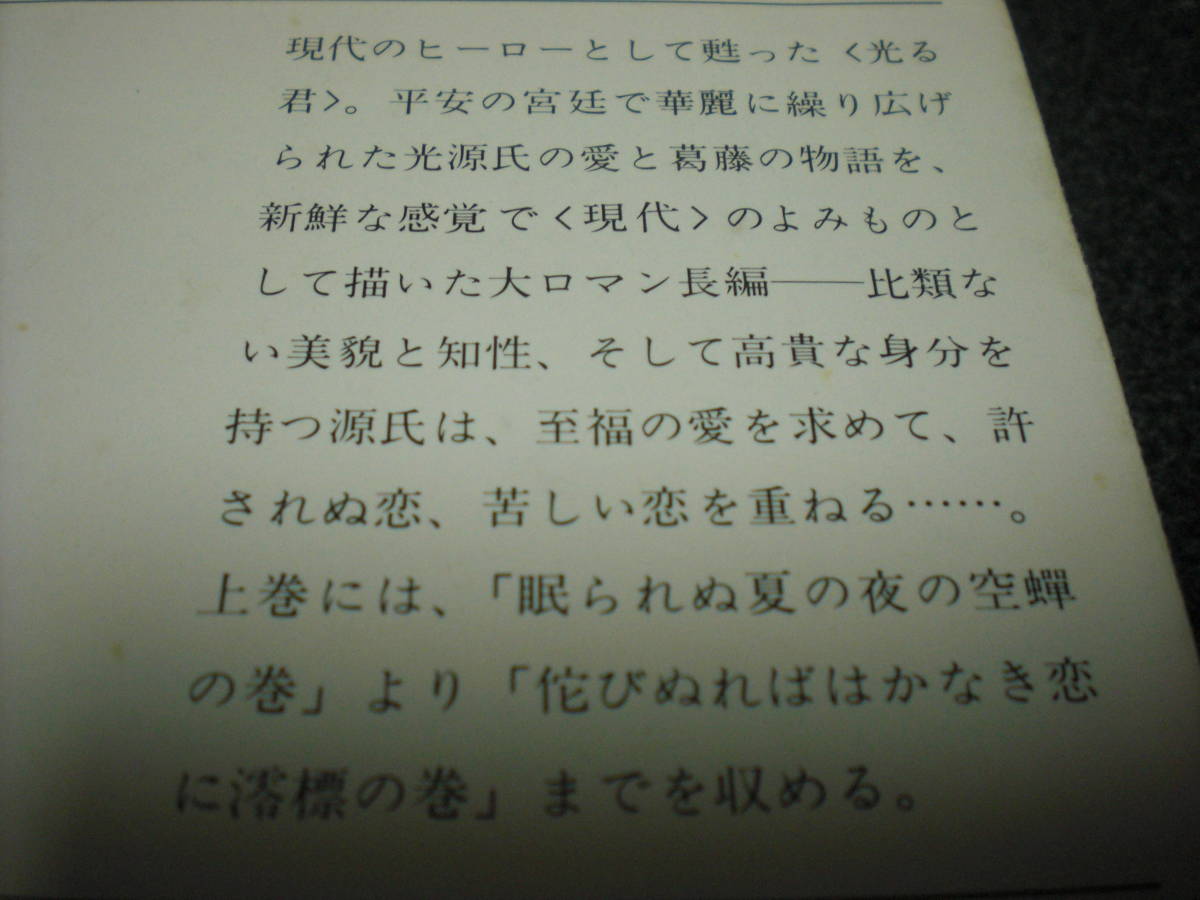 現代のヒーローとして甦った〈光る
君〉。平安の宮廷で華麗に繰り広げ
られた光源氏の愛と葛藤の物語を、
新鮮な感覚で〈現代〉のよみものと
して描いた大ロマン長編――比類な
い美貌と知性、そして高貴な身分を
持つ源氏は、至福の愛を求めて、許
されぬ恋、苦しい恋を重ねる……。
上巻には、「眠られぬ夏の夜の空蟬
の巻」より「侘びぬればはかなき恋
に澪標の巻」までを収める。